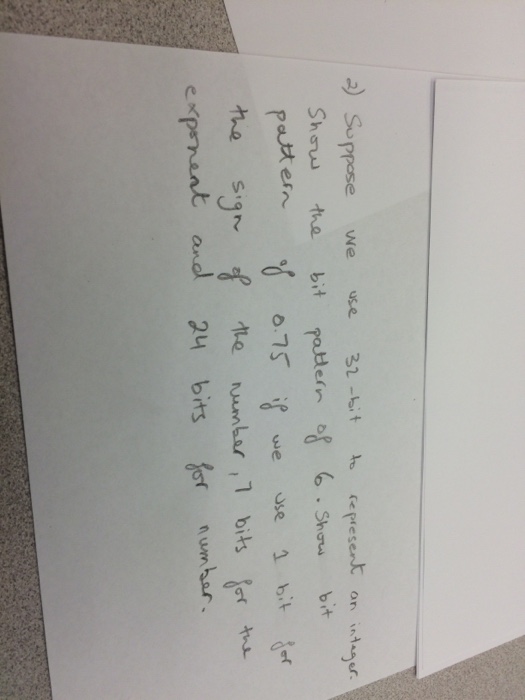 2) Suppose we use 32-bit to represent an integer.
Show the bit pattern of 6. Show bit
pattern of 0.75 if we use 1 bit for
the sign of the number, 7 bits for the
exponent and 24 bits for number.